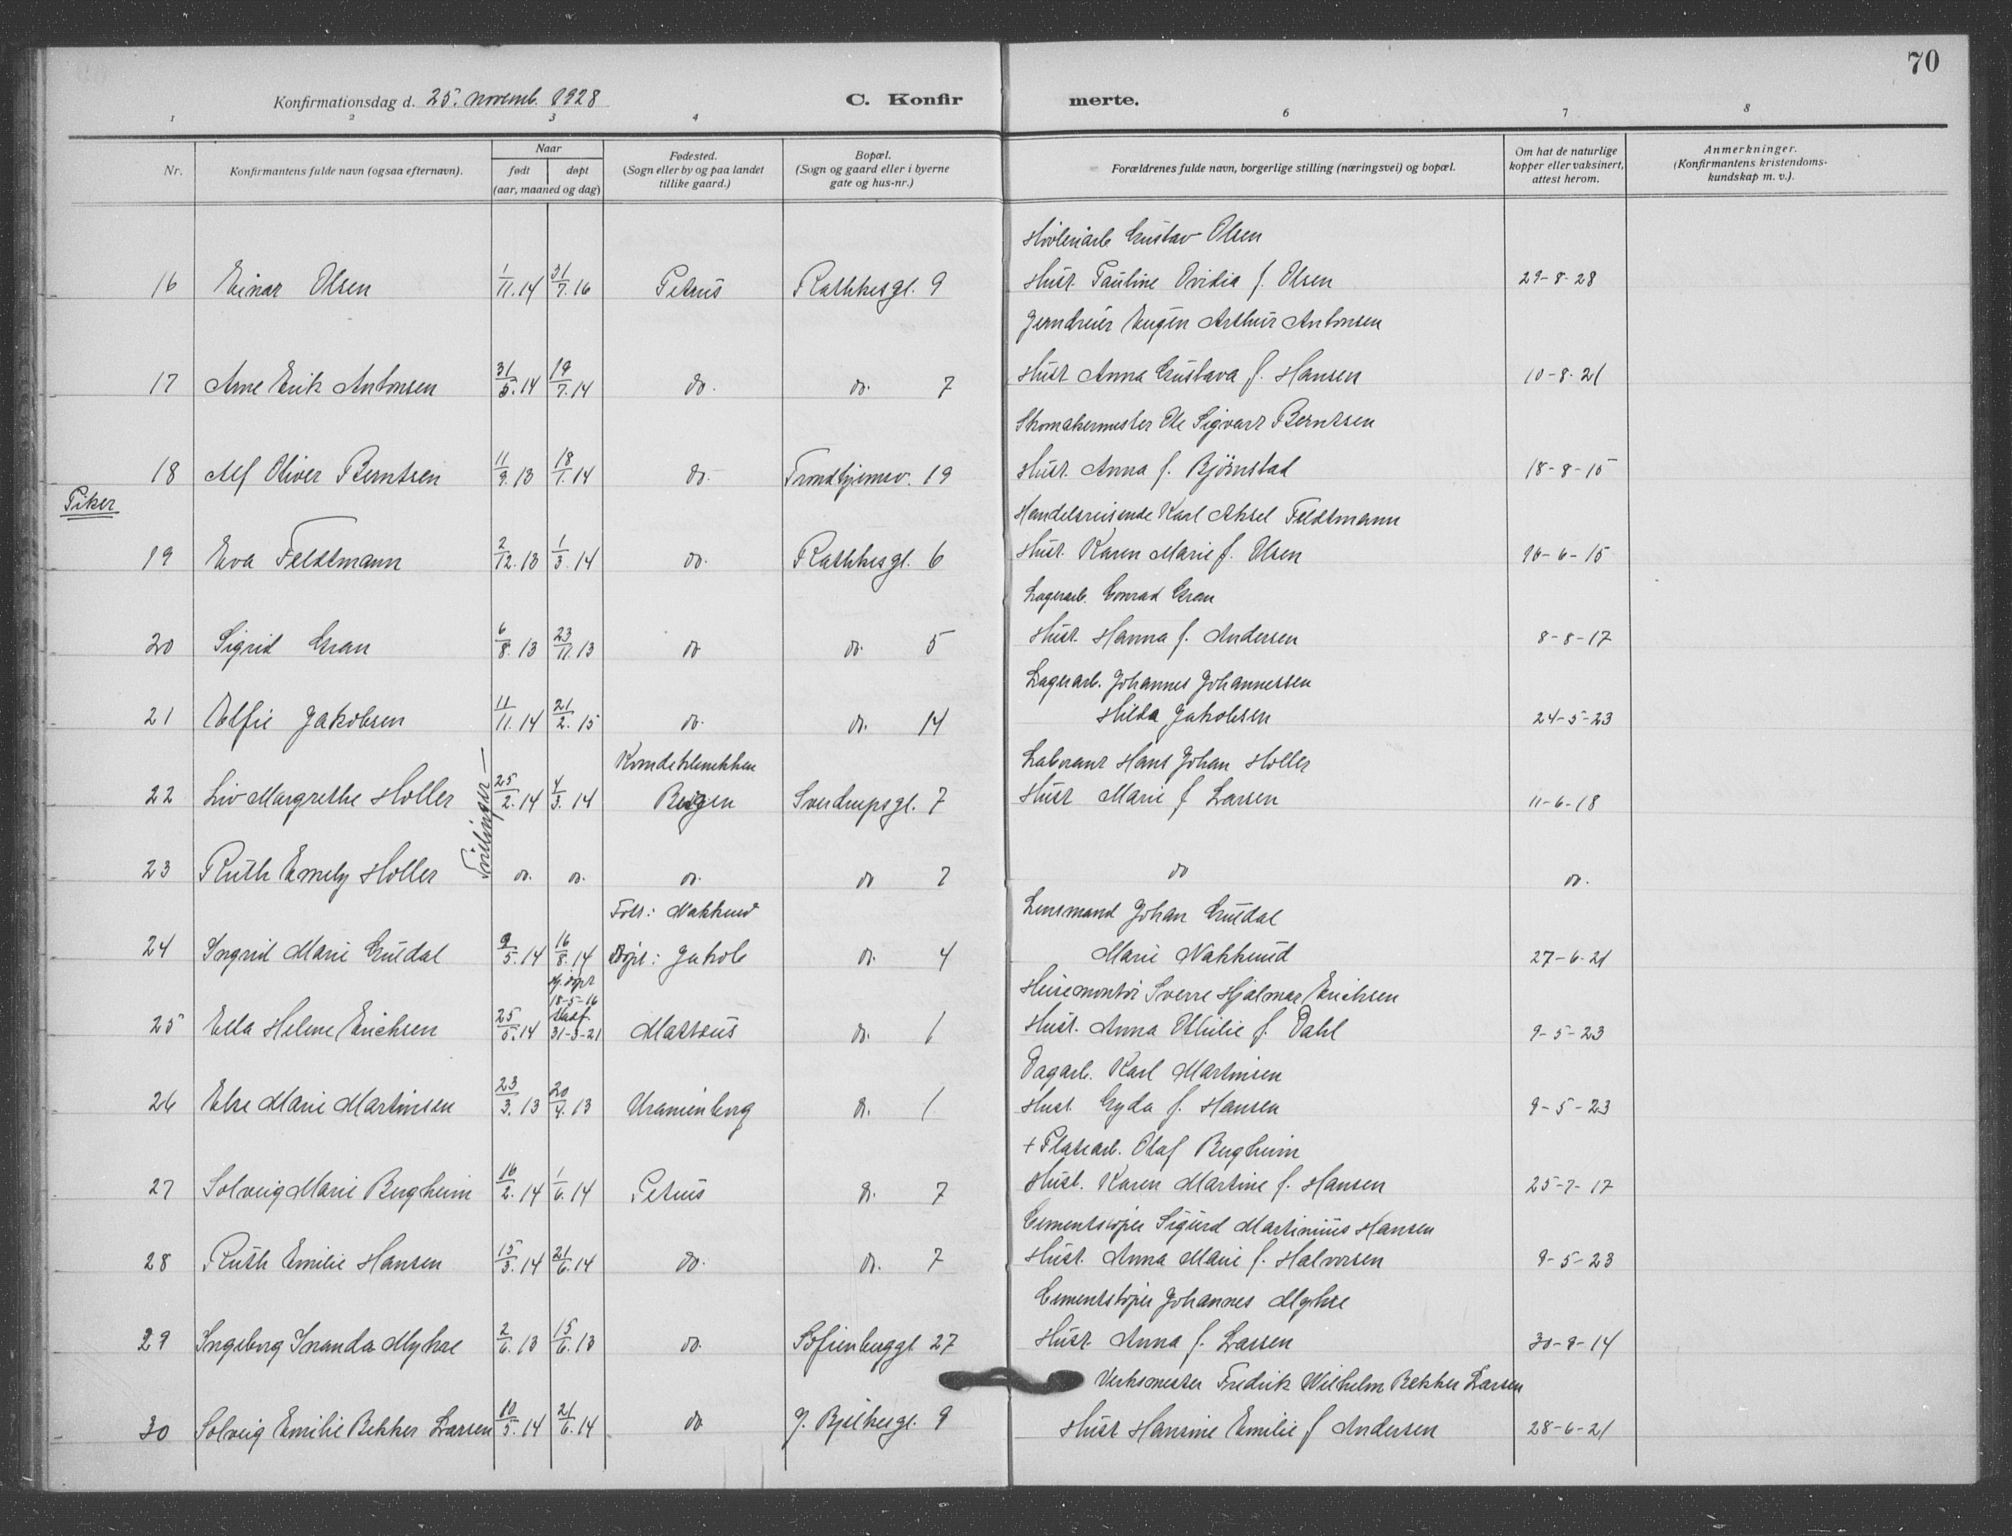 70
Konfirmationsdag d. 25. novemb. 1928 C. Konfirmerte.
1 2 3 4 6 7 8
Nr. Konfirmantens fulde navn (ogsaa efternavn). Naar født døpt (aar, maaned og dag) Fødested. (Sogn eller by og paa landet tillike gaard.) Bopæl. (Sogn og gaard eller i byerne gate og hus-nr.) Forældrenes fulde navn, borgerlige stilling (næringsvei) og bopæl. Om hat de naturlige kopper eller vaksinert, attest herom. Anmerkninger. (Konfirmantens kristendomskundskap m. v.).
Høvleriarb Gustav Olsen
16 Einar Olsen 1/11.14 31/7.16 Petrus Rathkesgt. 9 Hust. Pauline Ovidia f. Olsen 29-8-28
Jerndreier Eugen Arthur Antonsen
17 Arne Erik Antonsen 31/5.14 19/7.14 do. do. 7 Hust Anna Gustava f. Hansen 10-8-21
Skomakermester Ole Sigvart Berntsen
18 Alf Oliver Berntsen 11/9.13 18/1.14 do. Trondhjemsv. 19 Hust. Anna f. Bjørnstad 18-8-15
Piker
Handelsreisende Karl Aksel Feldtmann
19 Eva Feldtmann 2/12.13 1/3.14 do. Rathkesgt. 6 Hust. Karen Marie f. Olsen 16-6-15
Lagerarb. Conrad Gran
20 Sigrid Gran 6/8.13 23/11.13 do do. 5 Hust. Hanna f. Andersen 8-8-17
Lagerarb. Johannes Johannessen
21 Elfie Jakobsen 11/11.14 21/2.15 do. do. 14 Hilda Jakobsen 24-5-23
Kvindeklinikken Laborant Hans Johan Holler
22 Liv Margrethe Holler Tvillinger 25/2.14 4/3.14 Bergen Sverdrupsgt. 7 Hust Marie f Larsen 11-6-18
23 Ruth Emely Holler do. do. do. do 7 do do.
Født: Nakkerud Lensmand Johan Guldal
24 Ingrid Marie Guldal 9/5.14 16/8.14 Døpt: Jakob do. 4 Marie Nakkerud 27-6-21
Hj. døpt 18-5-16 Heisemontør Sverre Hjalmar Erichsen
25 Ella Helene Erichsen 25/5.14 Stadf 31-3-21 Matteus do. 1 Hust. Anna Othilie f. Dahl 9-5-23
Dagarb. Karl Martinsen
26 Else Marie Martinsen 23/3.13 20/4.13 Uranienborg do. 1 Hust. Gyda f. Hansen 9-5-23
+ Platearb. Olaf Bergheim
27 Solveig Marie Bergheim 16/2.14 1/6.14 Petrus do. 7 Hust. Karen Martine f. Hansen 25-7-17
Cementstøper Sigurd Martinius Hansen
28 Ruth Emilie Hansen 15/3.14 21/6.14 do. do. 7 Hust. Anna Marie f. Halvorsen 9-5-23
Cementstøper Johannes Myhre
29 Ingeborg Irianda Myhre 2/6.13 15/6.13 do. Sofienberggt 27 Hust. Anna f. Larsen 30-9-14
Verksmester Fredrik Wilhelm Bekker Larsen
30 Solveig Emilie Bekker Larsen 10/5.14 21/6.14 do J. Bjelkesgt. 9 Hust Hansine Emilie f Andersen 28-6-21